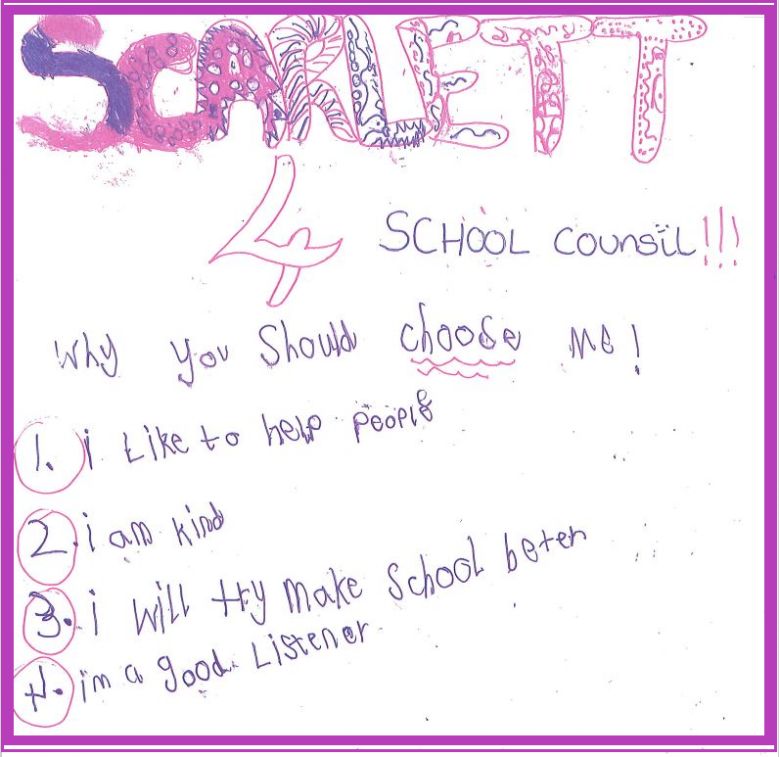 SCARLETT
4 SCHOOL COUNSIL!!!
Why you Should choose me!
1. i Like to help people
2. i am kind
3. i will try make School beter
4. im a good Listener